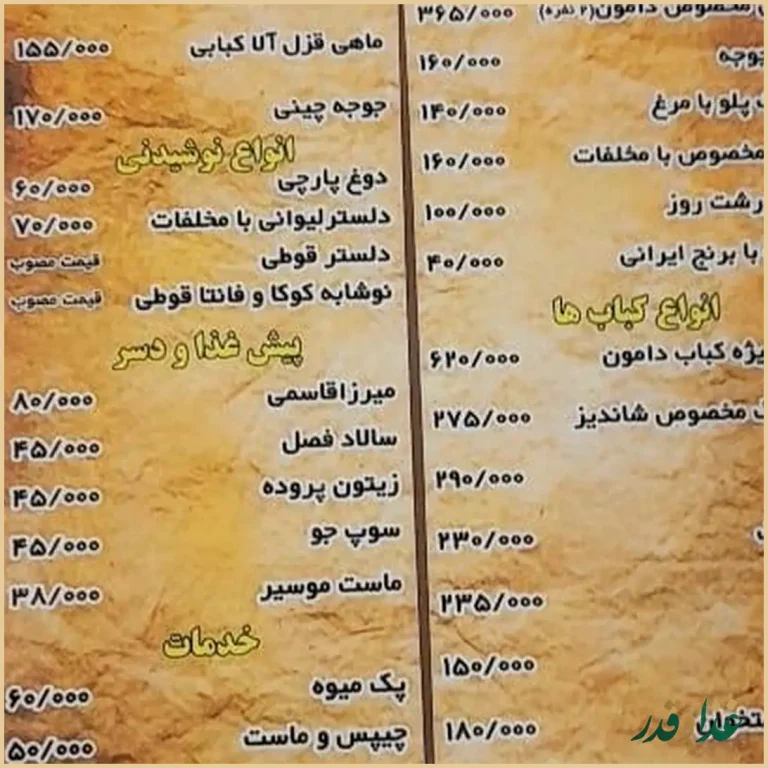 مخصوص دامون (۲ نفره) ۳۶۵/۰۰۰
جوجه ۱۶۰/۰۰۰
پلو با مرغ ۱۴۰/۰۰۰
مخصوص با مخلفات ۱۶۰/۰۰۰
روز ۱۰۰/۰۰۰
با برنج ایرانی ۴۰/۰۰۰
انواع کباب ها
کباب دامون ۶۲۰/۰۰۰
مخصوص شاندیز ۲۷۵/۰۰۰
۲۹۰/۰۰۰
۲۳۰/۰۰۰
۲۳۵/۰۰۰
۱۵۰/۰۰۰
۱۸۰/۰۰۰
ماهی قزل آلا کبابی ۱۵۵/۰۰۰
جوجه چینی ۱۷۰/۰۰۰
انواع نوشیدنی
دوغ پارچی ۶۰/۰۰۰
دلستر لیوانی با مخلفات ۷۰/۰۰۰
دلستر قوطی قیمت مصوب
نوشابه کوکا و فانتا قوطی قیمت مصوب
پیش غذا و دسر
میرزاقاسمی ۸۰/۰۰۰
سالاد فصل ۴۵/۰۰۰
زیتون پروده ۴۵/۰۰۰
سوپ جو ۴۵/۰۰۰
ماست موسیر ۳۸/۰۰۰
خدمات
پک میوه ۶۰/۰۰۰
چیپس و ماست ۵۰/۰۰۰